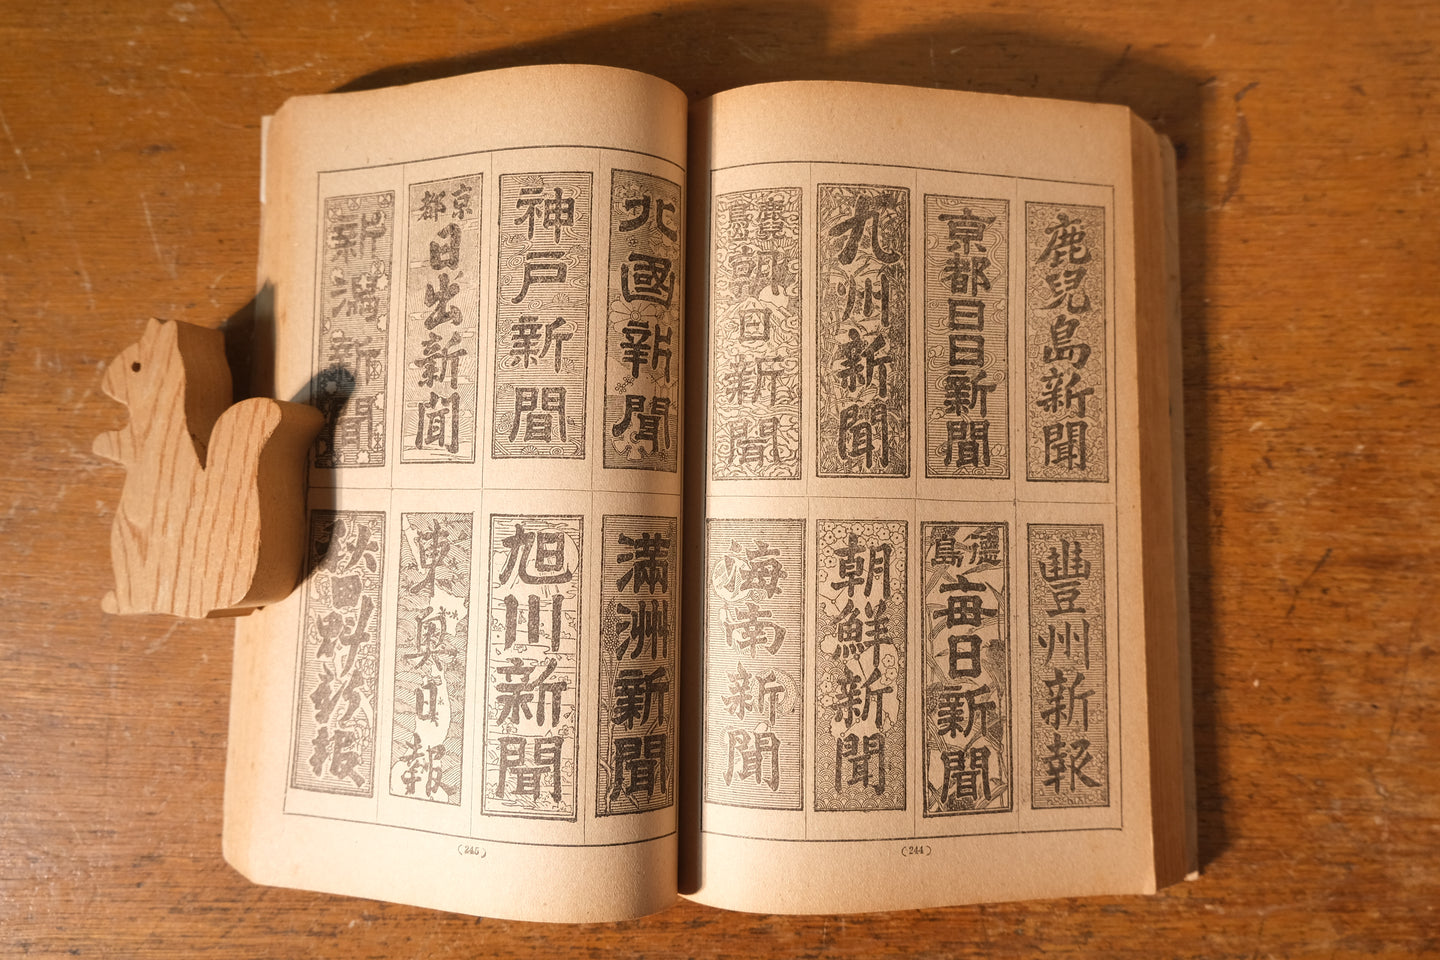 鹿兒島新聞
京都日日新聞
九州新聞
朝日新聞
豐州新報
德島
每日新聞
朝鮮新聞
海南新聞
(244)
北國新聞
神戸新聞
京都
日出新聞
新潟新聞
滿洲新聞
旭川新聞
東奥日報
秋田魁新報
(245)